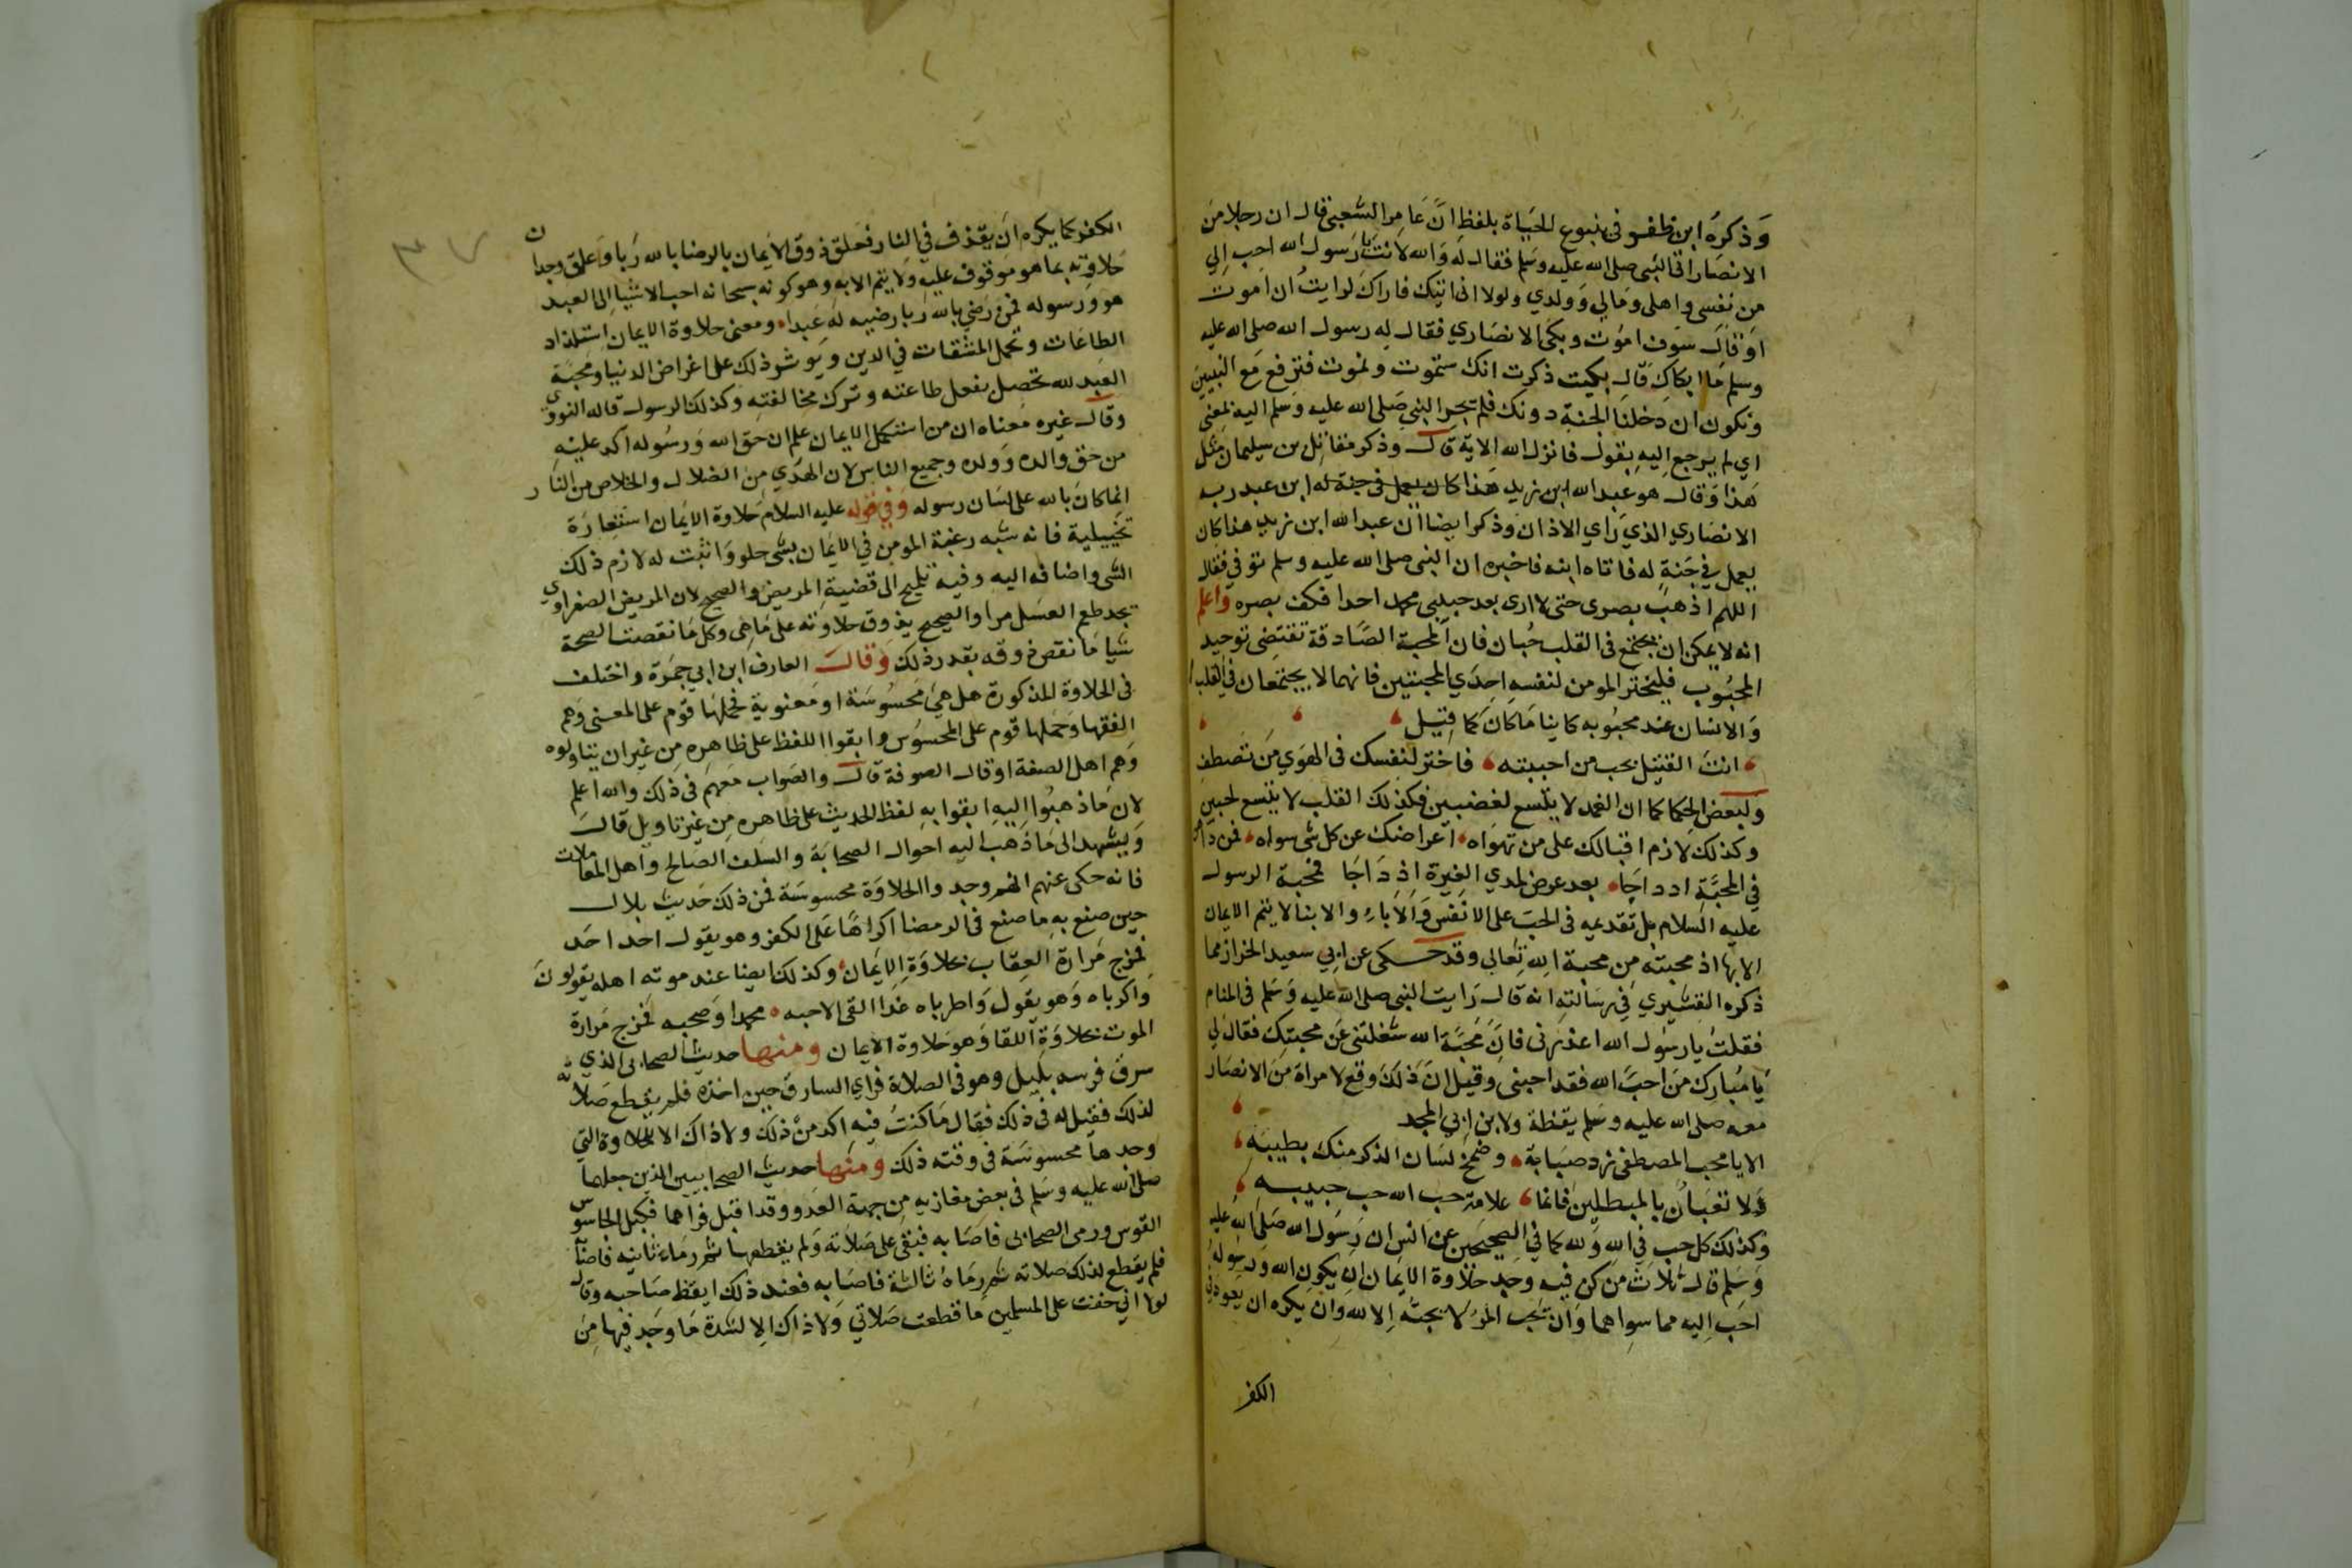 وَذكرَه ابن ظفر في ينبوع الحَيَاة بلفظ انَّ عَامِر الشعبى قال ان رجلا من
الانصَار اتى النبى صلى الله عليه وسَلم فقال لَه وَالله لانتَ يا رَسول الله احب إلي
من نفسى واهلى ومَالي وَولدي ولولا انى اتيك فاراك لرايتُ ان اموت
اوَ قال سَوف اموُت وبكى الانصَاري فقال له رسول الله صلى الله عليه
وسلم مَا ابكاك قال بكيت ذكرت انك ستموت ونموت فترفع مَع النبيين
ونكون ان دخلنا الجنة دونك فلم يحر النبي صَلى الله عليه وَسَلم اليه بمعنى
اي لم يرجع اليه بقول فانزل الله الاية قال وذكر مقاتل بن سليمان مثل
هَذا وَقال هو عَبد الله ابن زيد هَذا كان يعمل في جنة له ابن عبد ربه
الانصَاري الذي رَاي الاذان وَذكر ايضا ان عبد الله ابن زيد هذا كان
يعمل في جَنةٍ له فاتاه ابنه فاخبره ان النبى صلى الله عليه وسلم توفي فقال
اللهم اذهب بصرى حتى لا ارى بعد حبيبى محمد احدا فكف بصره واعلم
انه لا يمكن ان يجتمع فى القلب حُبان فان المحبة الصَّادقة تقتضى توحيد
المحبُوب فليختر المومن لنفسه احِدَي المحبتين فانهما لا يجتمعَان في القلب
وَالانسان عند محبُوبه كاينا مَا كان كما قِيل
انتَ القتيل بحب من احببته فاختر لنفسك فى الهَوي مَن تصطفِ
وَلبعض الحكما كما ان الغمد لا يتسع لغضبين فكذلك القلب لا يتسع لحبين
وكذلك لازم اقبالك على من تهوَاه اعراضك عن كل شى سواه فمن داهن
في المحبَّة ادداجَا بعد عرض لمدي الغِيرة اذ دَاجَا فمحبة الرسول
عليه السلام بل تقدمه فى الحبّ على الانفس وَالابَاءِ والابنا لا يتم الايمان
الابها اذ محبته مِن محبة الله تعَالى وقد حكى عن ابي سعيد الخراز مما
ذكره القشيري في رسَالتهِ انه قال رَايت النبى صلى الله عليه وَسَلم فى المنام
فقلتُ يا رسُول الله اعذرنى فانَّ مَحبَّة الله شغلتنى عَن محبتك فقال لي
يَا مُبارك مَن احبّ الله فقد احبنى وقيل ان ذلك وقع لامراة من الانصَار
معه صلى الله عليه وسَلم يقظة ولابن ابي المجد
الا يا محب المصطفى زد صبَابة وضمخ لسَان الذكر منك بطيبهِ
وَلا تعبَأن بالمبطلين فانما علامة حب الله حب حبيبه
وَكذلك كل حب في الله وَلله كما في الصحيحين عن انس ان رسُول الله صَلى الله عليه
وَسَلم قال ثلاث مَن كن فيه وجَد حلاوة الايمان ان يكون الله وَرسوله
احَب اليه مما سواهما وَان يحب المرُ لا يحبُه إلا لله وان يكره ان يعود في
الكفر
الكفر كما يكره ان يقذف في النار فعلق ذوق الايمان بالرضا بالله رَبا وَعلق وجدان
حَلاوته بما هو مَوقوف عليه وَلا يتم الا به وهو كونه سبحانه احب الاشيا الى العبد
هو ورَسوله فمن رَضي بالله رَبا رضيه لَه عَبدا ومعنى حلاوة الايمان استلذاذ
الطاعَات وتحمل المشقات في الدين ويوثر ذلك على اغراض الدنيا ومحبَة
العَبد لله تحصل بفعل طاعته وترك مخالفته وَكذلك الرسول قاله النووي
وقال غيره مَعناه ان من استكمل الايمان علم ان حَق الله وَرسُوله اكد عليه
من حَق والده وَولده وجميع الناس لان الهدَي من الضلال والخلاص من النار
انما كانَ بالله على لسَان رسوله وَفي قوله عليه السلام حَلاوة الايمان استعارَة
تخييلية فانه شبه رغبة المومن في الايمان بشى حلو وَاثبت له لازم ذلك
الشى واضافه اليه وفيه تلميح الى قضية المريض والصحيح لان المريض الصفراوي
يجد طعم العسَل مرا والصحيح يذوق حلاوته على مَاهى وكل مَا نقصت الصحة
شيا مَا نقص ذوقه بقدر ذلك وَقال العارف ابن ابي جمرَة واختلف
فى الحلاوة المذكورة هَل هي مَحسُوسَة او مَعنوية فحملها قوم على المعنى وَهم
الفقها وَحَملها قوم على المحسوُس وابقوا اللفظ على ظاهِرهِ مِن غيران يتاولوه
وَهم اهل الصفة اوقال الصوفة قال والصَواب معَهمَ فى ذلك والله اعلم
لان مَا ذهبُوا اليهِ ابقوا بهِ لفظ الحديث على ظاهره مِن غير تاويل قال
وَيشهد الى مَا ذهَب اليه احوال الصحَابَة والسَلف الصَالح واهل المعَاملات
فانه حكى عنهم انهم وجدوا الحلاوَة محسوسَة فمن ذلك حَديث بلال
حين صنع به ما صنع فى الرمضا اكراهًا عَلى الكفر وهو يقول احد احَد
فمزج مَرارة العِقاب بحلاوَة الايمان وكذلك ايضا عند موته اهله يقولون
وَاكرباه وَهو يقول وَاطرباه غدا القى الاحبه محمدا وَصَحبه فمزج مَرارة
الموت بحَلاوَة اللقا وَهو حَلاوة الايمان ومنها حديث الصحابى الذي
سرق فرسه بليل وهو فى الصلاة فراي السارق حين اخذه فلم يقطع صَلاته
لذلك فقيل له فى ذلك فقال مَا كنتُ فيه اكد من ذلك ولا ذاك الا للحلاوة التي
وجدها محسوسَة فى وقته ذلك ومنها حديث الصحابيين الذين جعلهما
صلى الله عليه وسَلم فى بعض مغازيه مِن جهة العَدو وقد اقبل فراهما فكبل الجاسوس
القوس ورمى الصحابى فاصَابه فبقى على صَلاته وَلم يقطعها ثم رمَاه ثانيه فاصَابه
فلم يقطع لذلك صلاته ثم رمَاهُ ثالثة فاصَابه فعند ذلك ايقظ صَاحبه وقال
لولا اني خفت على المسلمين مَا قطعت صَلاتي وَلا ذاك الا لشدة مَا وجَد فيها مِن